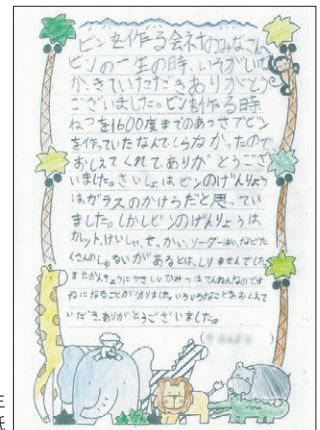 ビンを作る会社のみなさん
ビンの一生の時、いろいろ
かきていただきありがとう
ございました。ビンを作る時
ねつを1600度までのあつさでビン
を作っていたなんてしらなかったので
おしえてくれてありがとうござ
いました。さいしょはビンのげんりょう
はガラスのかけらだと思ってい
ました。しかしビンのげんりょうは、
カレット、けいしゃ、せっかい、ソーダーはい、などた
くさんのしゅるいがあるとは、しりませんでした。
またかんきょうにやさしいひみつはてんねんなのです
ねになることが分りました。いろいろなことをおしえて
いただき、ありがとうございました。